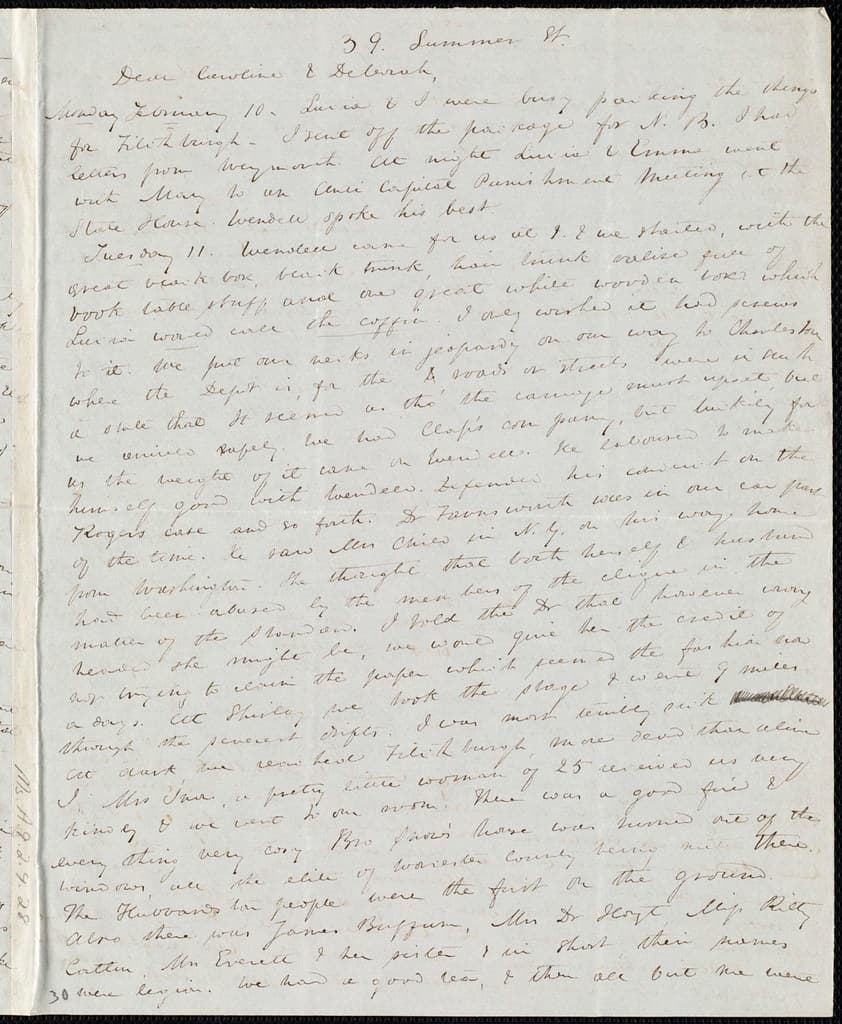 39. Summer St.
Dear Caroline & Deborah,
Monday February 10. Lucia & I were busy packing the things
for Fitchburgh - I sent off the package for N. B. I had
letters from Weymouth. At night Lucia & Emma went
with Mary to an Anti Capital Punishment Meeting at the
State House. Wendell spoke his best.
Tuesday 11. Wendell came for us at 9. & we started, with the
great black box, black trunk, hair trunk valise full of
book table stuff, and one great white wooden box which
Lucia would call the coffin I only wished it had screws
to it. We put our necks in jeopardy on our way to Charlestown
where the Depot is, for the roads or streets were in such
a state that it seemed as tho' the carriage must upset, but
we arrived safely. We had Claps company, but luckily for
us the weight of it came on Wendell. He laboured to make
himself good with Wendell. Defended his conduct on the
Rogers case and so forth. Dr Farnsworth was in our car part
of the time. He saw Mrs Child in N. Y. on his way home
from Washington. She thought that both herself & husband
had been abused by the members of the clique in the
matter of the Standard. I told the Dr that however wrong
headed she might be, we would give her the credit of
not trying to claim the paper which seemed the fashion now
a days. At Shirley we took the stage & went 9 miles
through the severest drifts. I was most terribly sick
At dark we reached Fitchburgh, more dead than alive
I. Mrs Snow, a pretty little woman of 25 received us very
kindly & we went to our room. There was a good fire &
every thing very cosy Bro Snow's house was turned out of the
windows, all the elite of Worcester County being met there.
The Hubbardston people were the first on the ground.
Also there was James Buffum, Mrs Dr Hoyt Miss Kitty
Catlin, Mrs Everett & her sister & in short their names
were legion. We had a good tea, & then all but me were
30